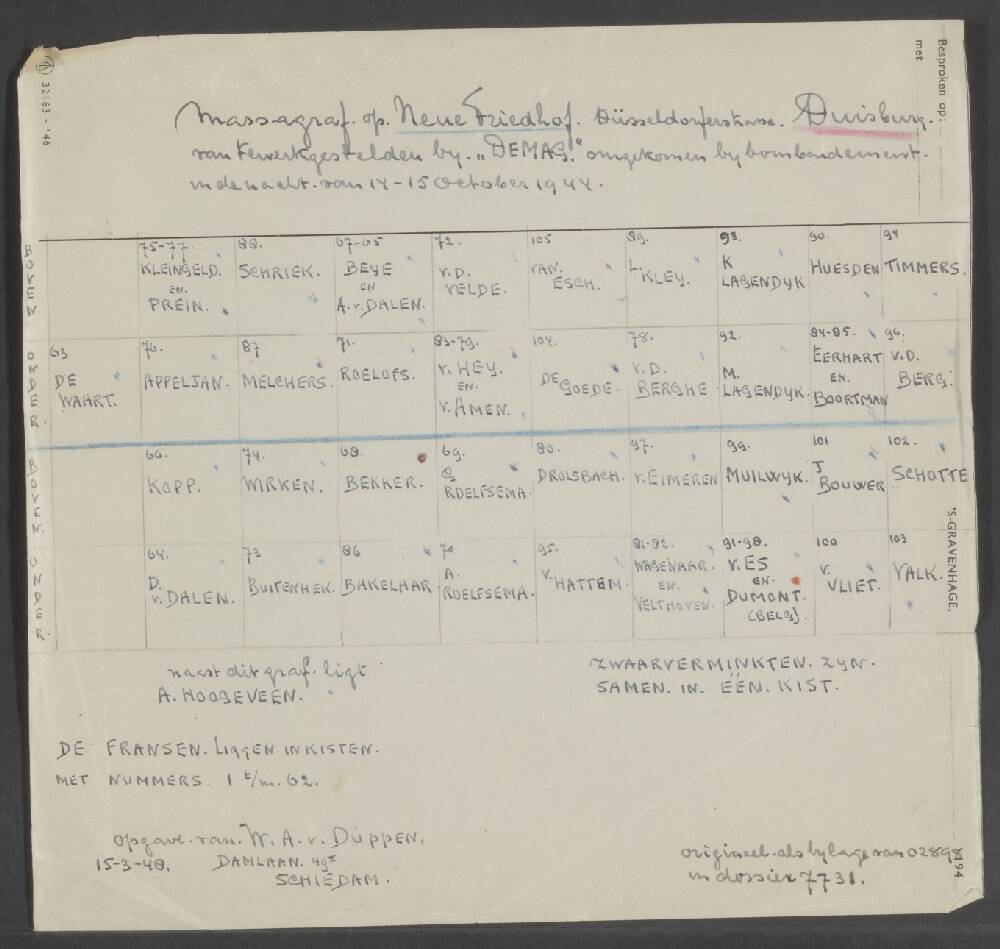 Besproken op:
met
32163 - '46
Massagraf. op. Neue Friedhof. Düsseldorferstrasse. Duisburg.
van Tewerkgestelden by. „DEMAG." omgekomen by bombardement.
in de nacht. van 14 - 15 October 1944.
BOVEN
75-77. 88. 67-65 72. 105 89. 93. 90. 94
KLEINGELD. SCHRIEK. BEYE V.D. VAN. L. K HUESDEN TIMMERS.
EN. EN VELDE. ESCH. KLEY. LAGENDYK
PREIN. A.v.DALEN.
ONDER.
63 76. 87 71. 83-79. 104. 78. 92. 84-85. 96.
DE APPELJAN. MELCHERS. ROELOFS. v. HEY. DE V.D. M. EERHART V.D.
WAHRT. EN. GOEDE. BERGHE LAGENDYK. EN. BERG.
v. AMEN. BOORTMAN
BOVEN.
66. 74. 68. 69. 80. 97. 99. 101 102.
KOPP. WIRKEN. BEKKER. G DROLSBACH. v. EIMEREN MUILWYK. J SCHOTTE
ROELFSEMA. BOUWER
ONDER.
64. 73 86 70 95. 81-82. 91-98. 100 103
D. BUITENHEK. BAKELAAR A. v. WAGENAAR. v. ES v. VALK.
v. DALEN. ROELFSEMA. HATTEM. EN. EN. VLIET.
VELTHOVEN. DUMONT.
(BELG).
'S-GRAVENHAGE,
naast dit graf. ligt
A. HOOGEVEEN.
ZWAARVERMINKTEN. ZYN.
SAMEN. IN. ÉÉN. KIST.
DE FRANSEN. LIGGEN IN KISTEN.
MET NUMMERS 1 t/m. 62.
opgave. van. W. A. v. Düppen.
15-3-48. DAMLAAN. 49II
SCHIEDAM.
origineel. als bylage van 02898
in dossier 7731.
194